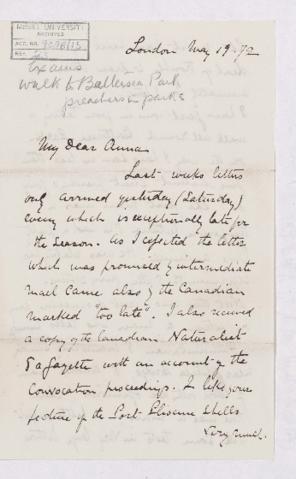 McGILL UNIVERSITY
ARCHIVES
ACC. NO.
REF.
London May 19. 72
Exams
walk to Battersea Park
preachers in parks
My Dear Anna
Last weeks letters
only arrived yesterday (Saturday)
evening which is exceptionally late for
the season. As I expected the letter
which was promised by intermediate
mail came also by the Canadian
marked "too late". I also received
a copy of the Canadian Naturalist
& a Gazette with an account of the
Convocation proceedings. I like your
picture of the Post-Pliocene shells
very much.